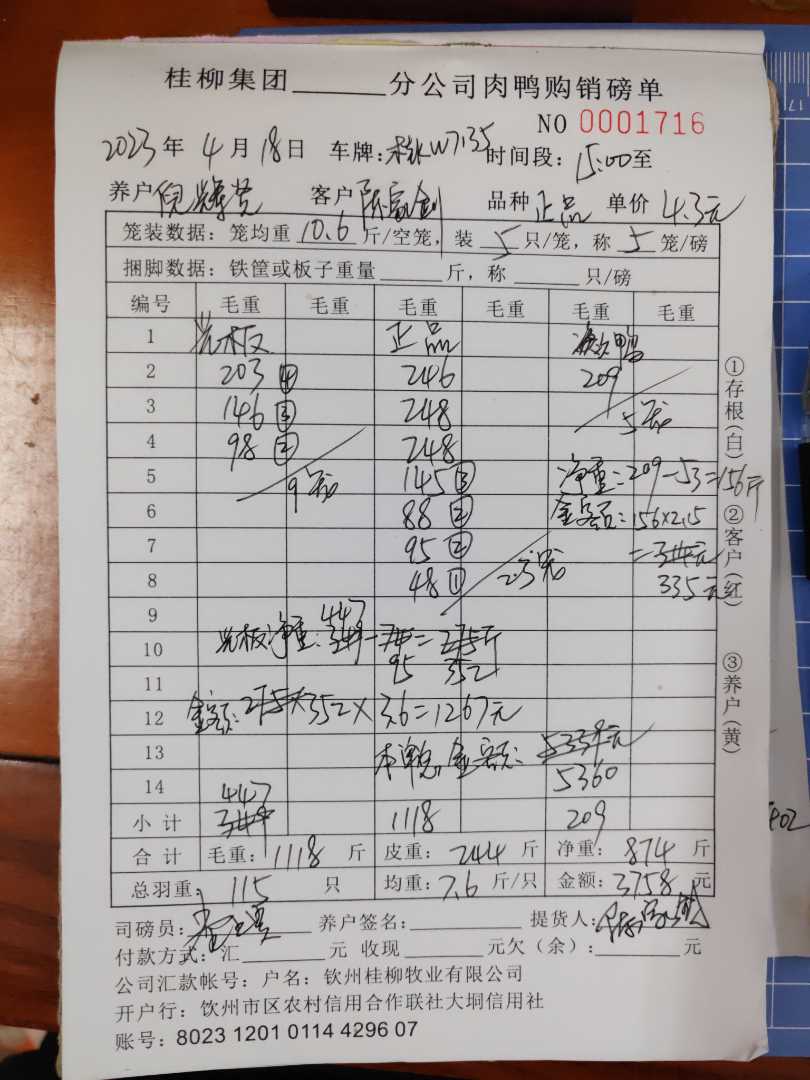 桂柳集团______分公司肉鸭购销磅单
NO 0001716
2023年 4月 18日 车牌: W7135 时间段: 15:00至
养户 倪 客户 陈家剑 品种 正品 单价 4.3元
笼装数据: 笼均重 10.6 斤/空笼, 装 5 只/笼, 称 5 笼/磅
捆脚数据: 铁筐或板子重量______斤, 称______只/磅
编号 毛重 毛重 毛重 毛重 毛重 毛重
1 光板 正品 次鸭
2 203 ④ 246 209
3 146 ③ 248 5笼
4 98 ② 248
5 9笼 145 ③ 净重: 209-53=156斤
6 88 ② 金额: 156×2.15
7 95 ② =元
8 48 ① 23笼 335元
9 447
10 光板净重: - = 斤
11 95 352
12 金额: 352×3.6=1267元
13 本单总金额: 元
14 447 5360
小计 1118 209
合计 毛重: 1118 斤 皮重: 244 斤 净重: 874 斤
总羽重: 115 只 均重: 7.6 斤/只 金额: 3758 元
司磅员: 养户签名:________ 提货人:
付款方式: 汇______元 收现______元欠(余):______元
公司汇款帐号: 户名: 钦州桂柳牧业有限公司
开户行: 饮州市区农村信用合作联社大垌信用社
账号: 8023 1201 0114 4296 07
①存根(白)
②客户(红)
③养户(黄)